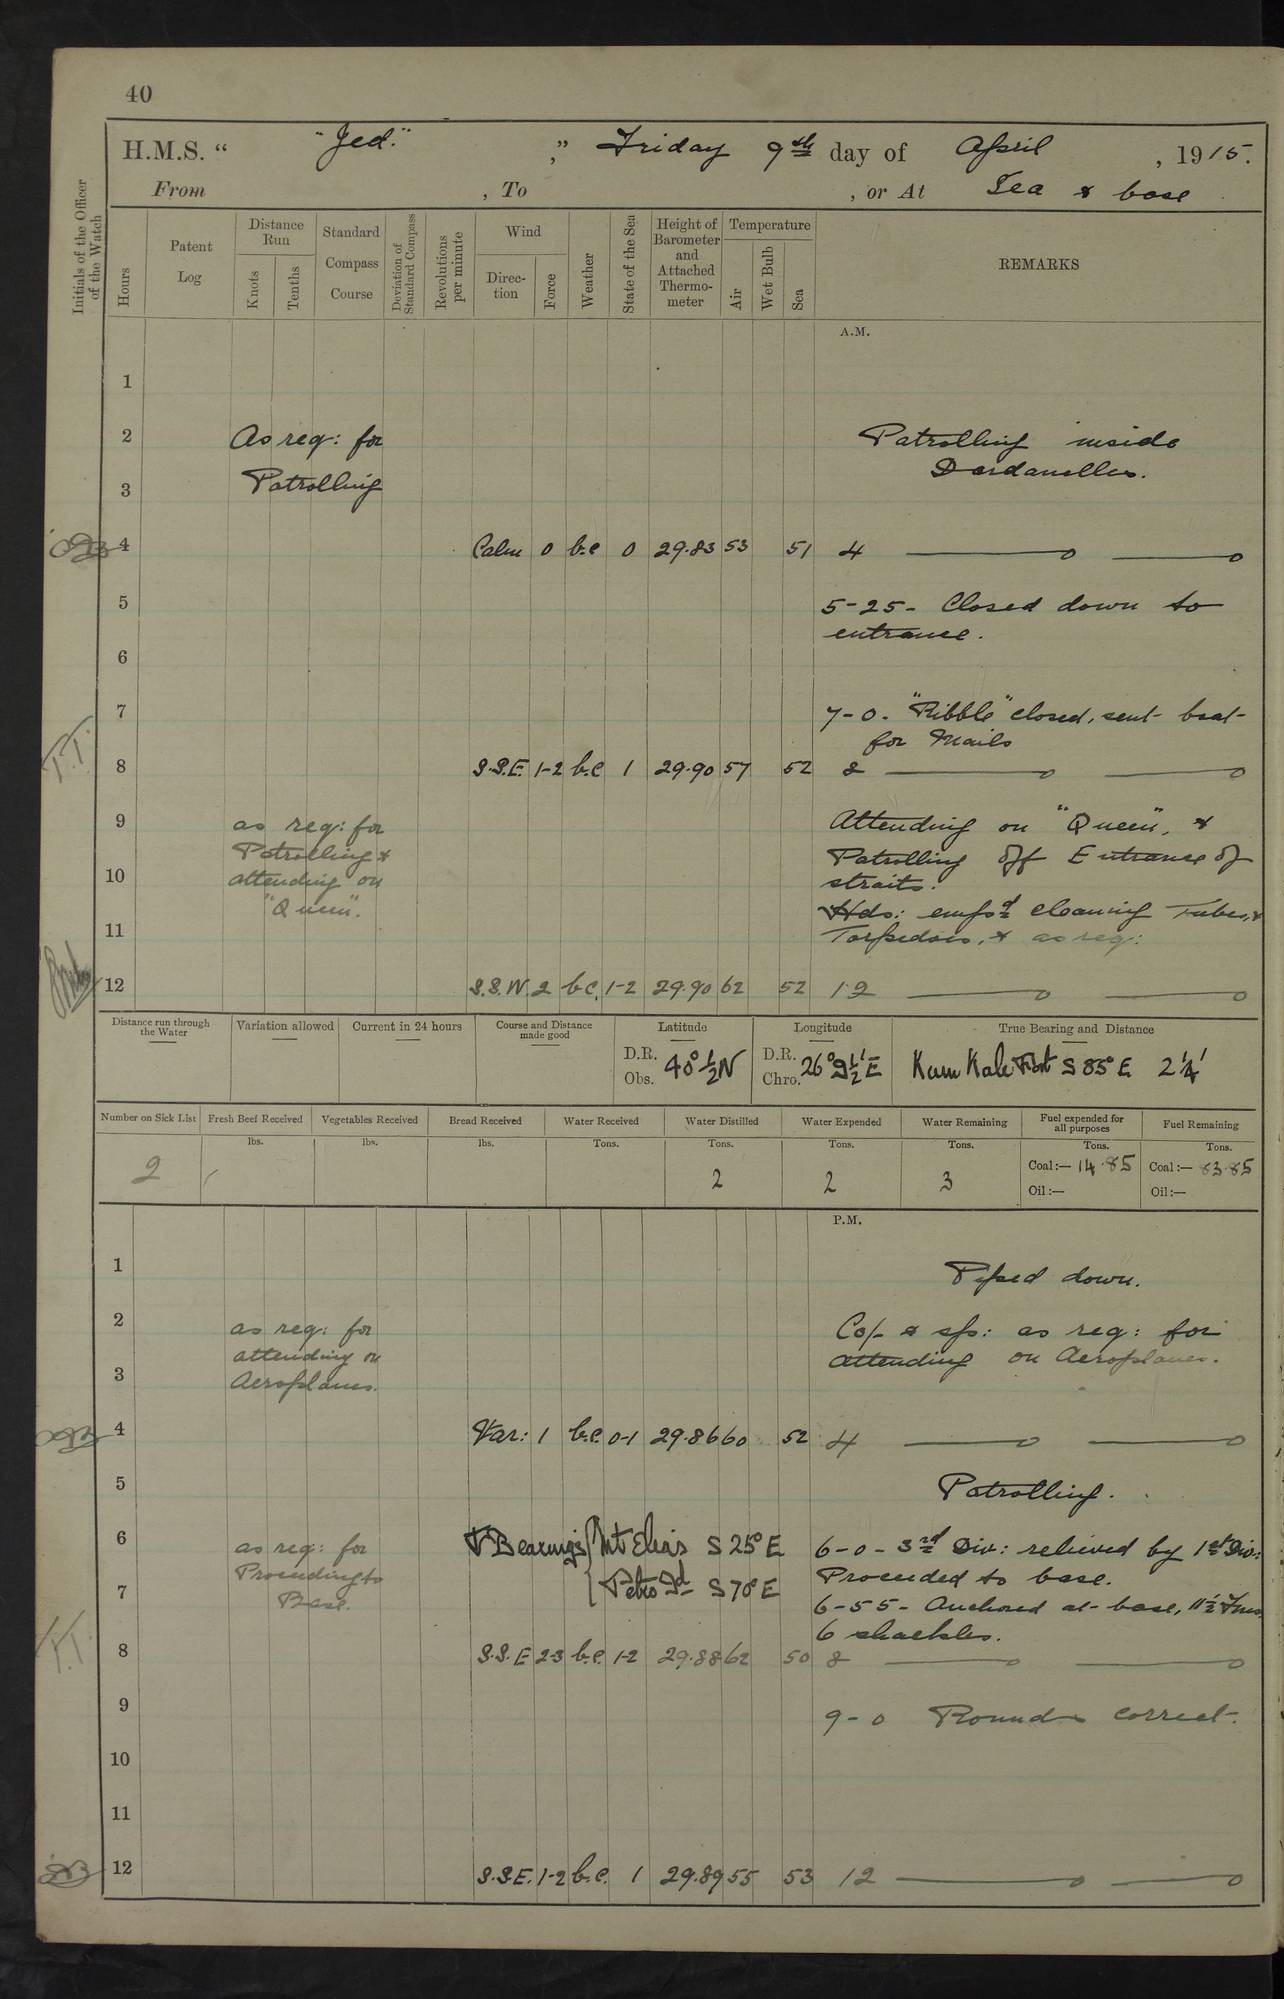 40
H.M.S. " "Jed." ," Friday 9th day of April , 1915.
From , To , or At Sea & base
Initials of the Officer of the Watch
Hours
Patent Log
Distance Run
Knots
Tenths
Standard Compass Course
Deviation of Standard Compass
Revolutions per minute
Wind
Direc-tion
Force
Weather
State of the Sea
Height of Barometer and Attached Thermo-meter
Temperature
Air
Wet Bulb
Sea
REMARKS
A.M.
1
2 As req: for Patrolling inside
Patrolling Dardanelles.
3
4 Calm 0 b.c 0 29.83 53 51 4
5 5-25- Closed down to
entrance.
6
7 7-0- "Ribble" closed, sent boat
for Mails
T.T. 8 S.S.E. 1-2 b.c 1 29.90 57 52 8
9 as req: for Attending on "Queen", &
Patrolling & Patrolling off Entrance of
10 attending on straits.
"Queen". Hds: empd cleaning Tubes, &
11 Torpedoes, & as req:
12 S.S.W. 2 b.c. 1-2 29.90 62 52 12
Distance run through the Water
Variation allowed
Current in 24 hours
Course and Distance made good
Latitude
D.R. Obs. 40° ½ N
Longitude
D.R. Chro. 26° 9½' E
True Bearing and Distance
Kum Kale Fort S 85° E 2¼'
Number on Sick List
2
Fresh Beef Received
lbs.
Vegetables Received
lbs.
Bread Received
lbs.
Water Received
Tons.
Water Distilled
Tons.
2
Water Expended
Tons.
2
Water Remaining
Tons.
3
Fuel expended for all purposes
Tons.
Coal:— 14.85
Oil:—
Fuel Remaining
Tons.
Coal:— 83.85
Oil:—
P.M.
1 Piped down.
2 as req: for Co/- & sp: as req: for
attending on attending on Aeroplanes.
3 Aeroplanes.
4 Var: 1 b.c. 0-1 29.86 60 52 4
5 Patrolling.
6 as req: for Bearings { Mt Elias S 25° E 6-0- 3rd Div: relieved by 1st Div:
Proceeding to Proceeded to base.
7 Base. Petro Id S 70° E 6-55- Anchored at base, 11½ Fms,
6 shackles.
T.T. 8 S.S.E 2-3 b.c. 1-2 29.88 62 50 8
9 9-0 Rounds correct.
10
11
12 S.S.E. 1-2 b.c. 1 29.89 55 53 12